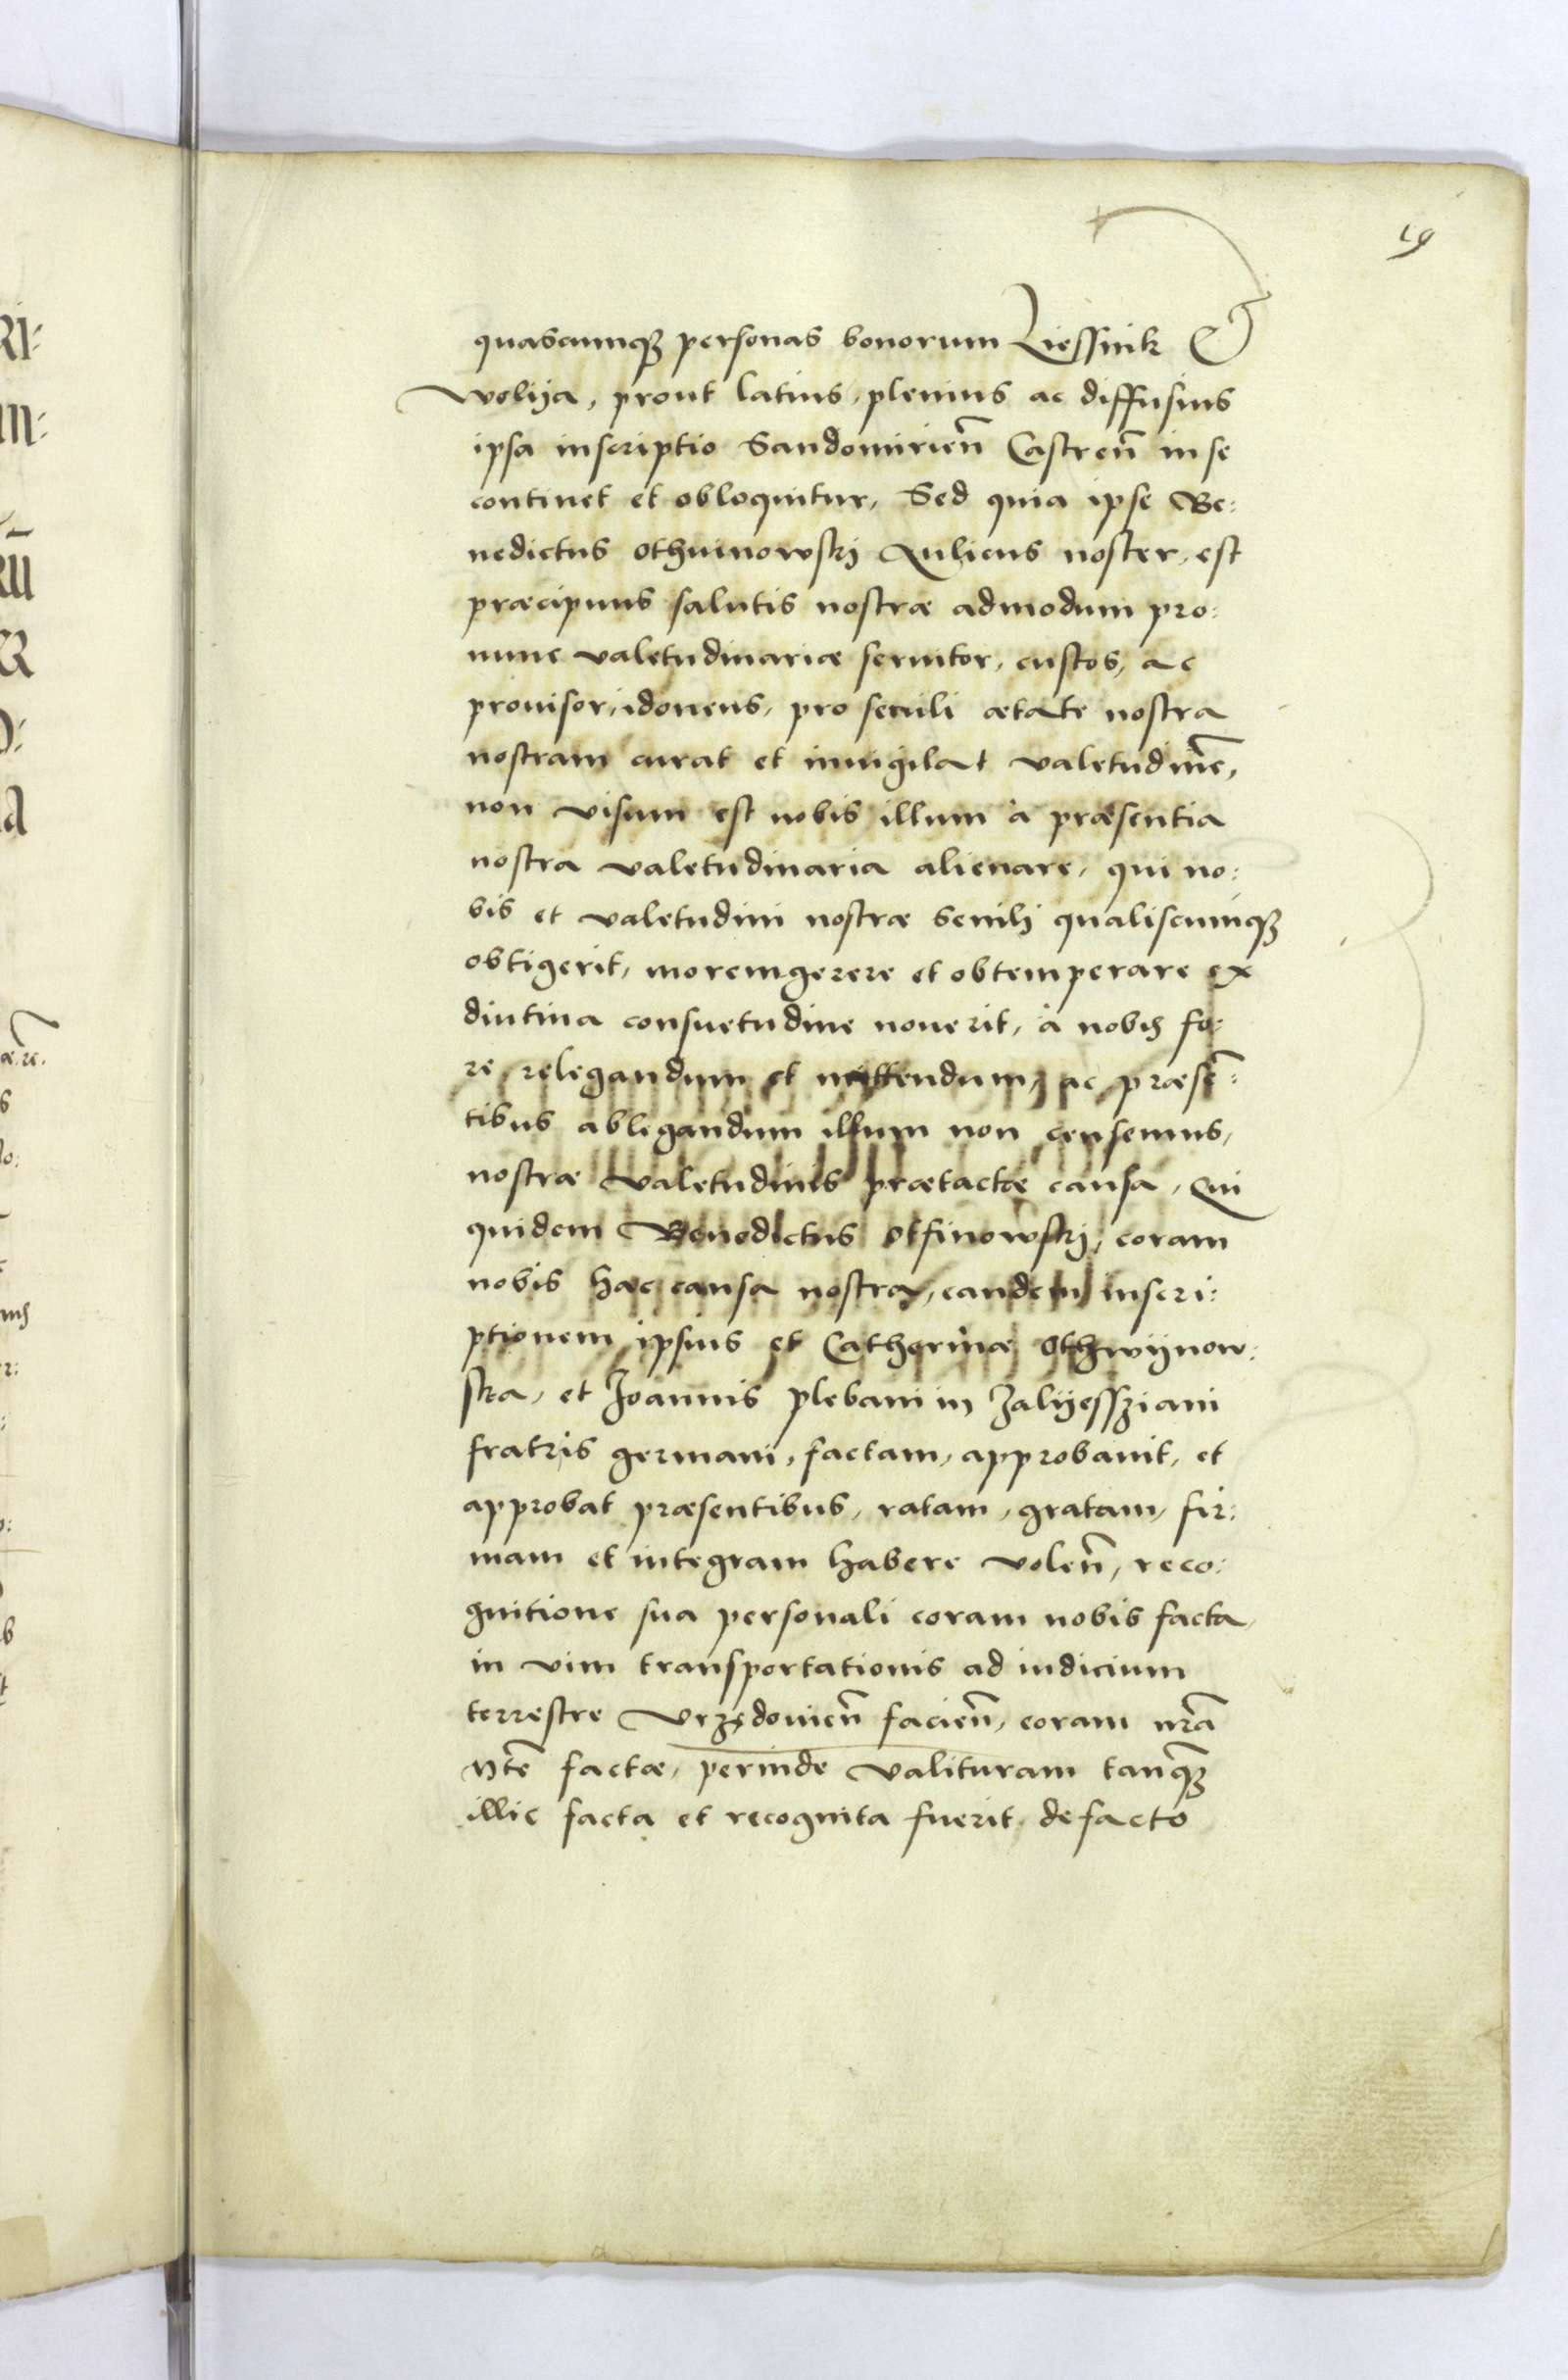 19
quascunqȝ personas bonorum Liessnik Et
Wolija, prout latius, plenius ac diffusius
ipsa inscriptio Sandomirien̄ Castren̄ in se
continet et obloquitur, Sed quia ipse Be:
nedictus Othuinowski Aulicus noster, est
præcipuus salutis nostræ admodum pro:
nunc valetudinariæ seruitor, custos, ac
prouisor, idoneus, pro senili ætate nostra
nostram curat et inuigilat valetudinē,
non visum est nobis illum à præsentia
nostra valetudinaria alienare, qui no:
bis et valetudini nostræ Senili qualiscunqȝ
obtigerit, moremgerere et obtemperare ex
diutina consuetudine nouerit, à nobis fo:
re relegandum et mittendum, ac præsē:
tibus ablegandum illum non censemus,
nostræ valetudinis prætactæ causa, Qui
quidem Benedictus Otfinowski, coram
nobis hac causa nostra, eandem inscri:
ptionem ipsius et Catherinæ Othwijnow:
ska, et Joannis plebani in Zalijessziani
fratris germani, factam, approbauit, et
approbat præsentibus, ratam, gratam, fir:
mam et integram habere volen̄, reco:
gnitione sua personali coram nobis facta,
in vim transportationis ad iudicium
terrestre Vrzędouien̄ facien̄, coram nrā
Mtē factæ, perinde valituram tanqȝ
illic facta et recognita fuerit de facto